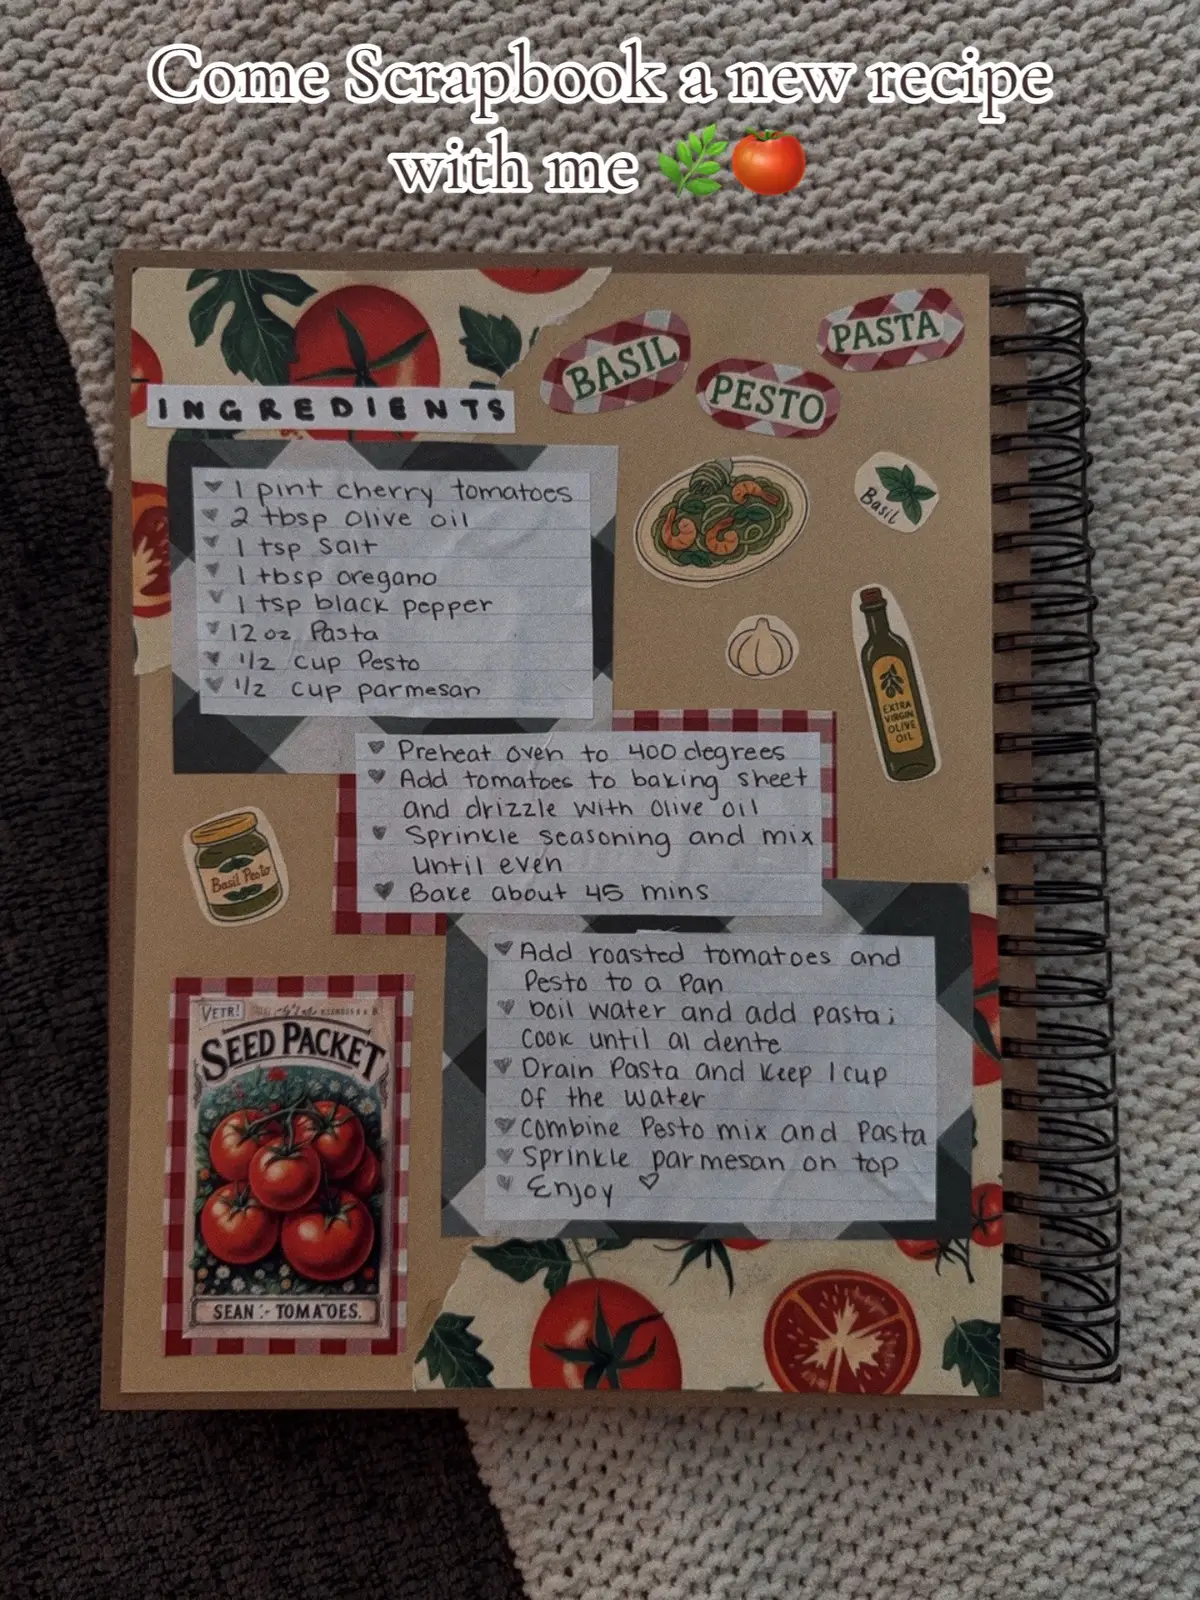 Come Scrapbook a new recipe
with me 🌿🍅
BASIL
PESTO
PASTA
INGREDIENTS
1 pint cherry tomatoes
2 tbsp Olive oil
1 tsp Salt
1 tbsp oregano
1 tsp black pepper
12 oz Pasta
1/2 cup Pesto
1/2 cup parmesan
Basil
EXTRA
VIRGIN
OLIVE
OIL
Preheat oven to 400 degrees
Add tomatoes to baking sheet
and drizzle with Olive oil
Sprinkle seasoning and mix
until even
Bake about 45 mins
Basil Pesto
Add roasted tomatoes and
Pesto to a Pan
boil water and add pasta;
Cook until al dente
Drain Pasta and Keep 1 cup
of the water
Combine Pesto mix and Pasta
Sprinkle parmesan on top
Enjoy ♡
VETR!
SEED PACKET
SEAN :- TOMATOES.